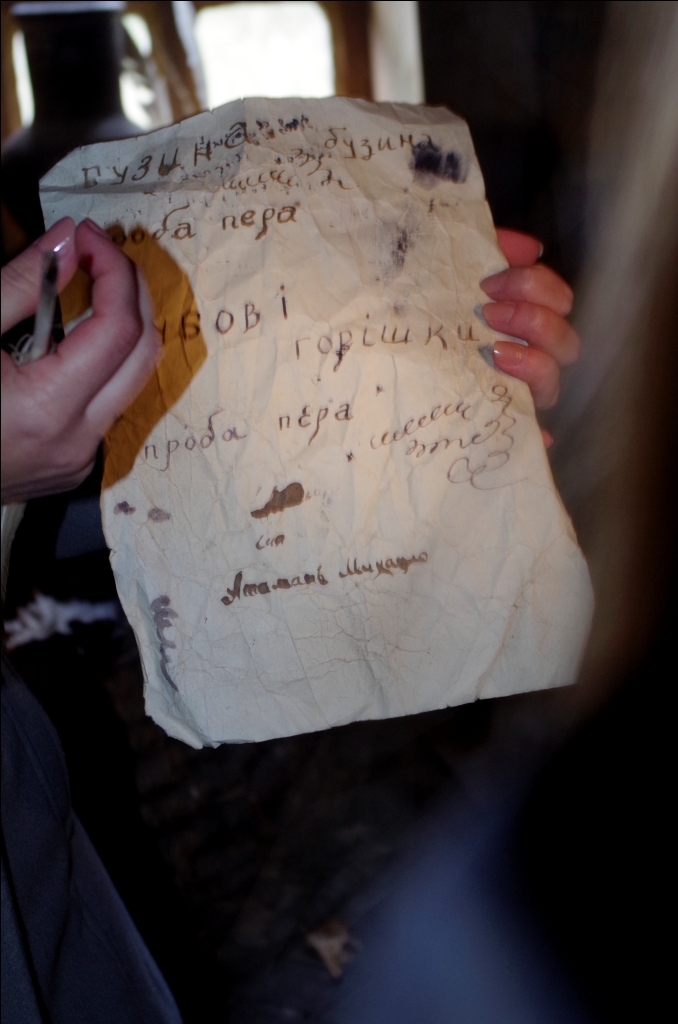 БУЗИНА бузина
проба пера
убові
горішки
проба пера
Атаманъ Михайло